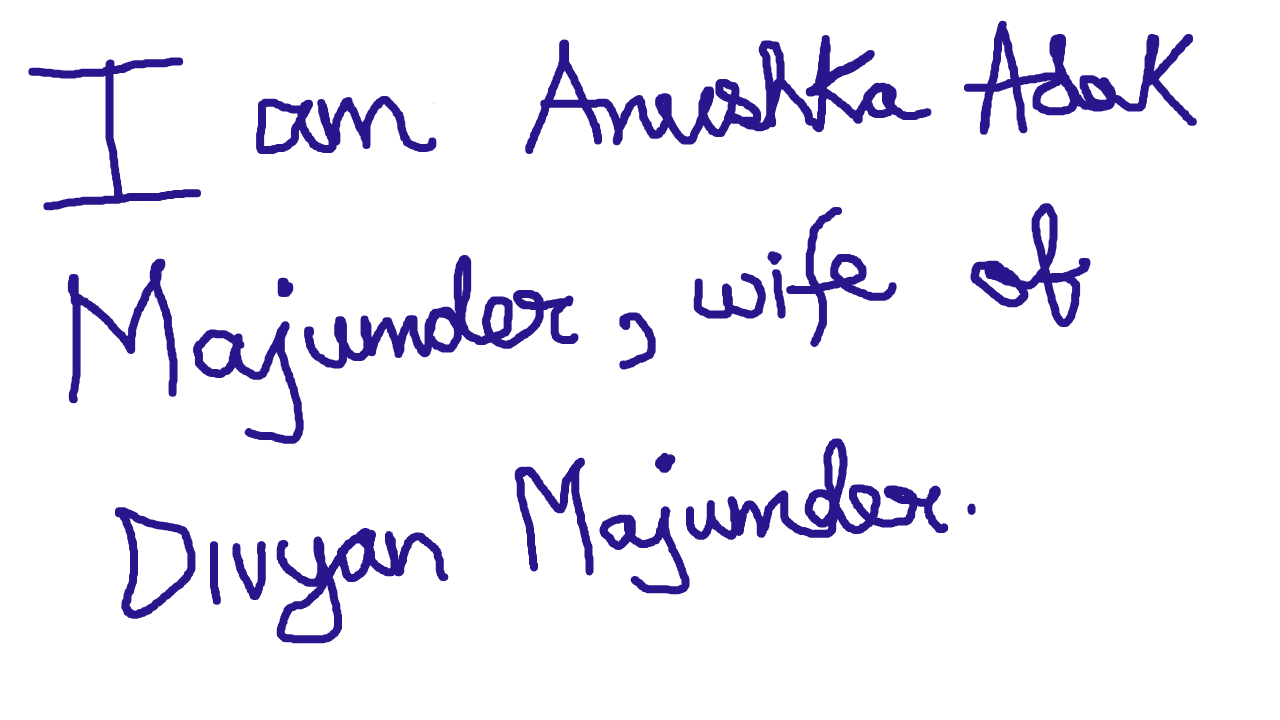 I am Anushka Adak
Majumder, wife of
Divyan Majumder.